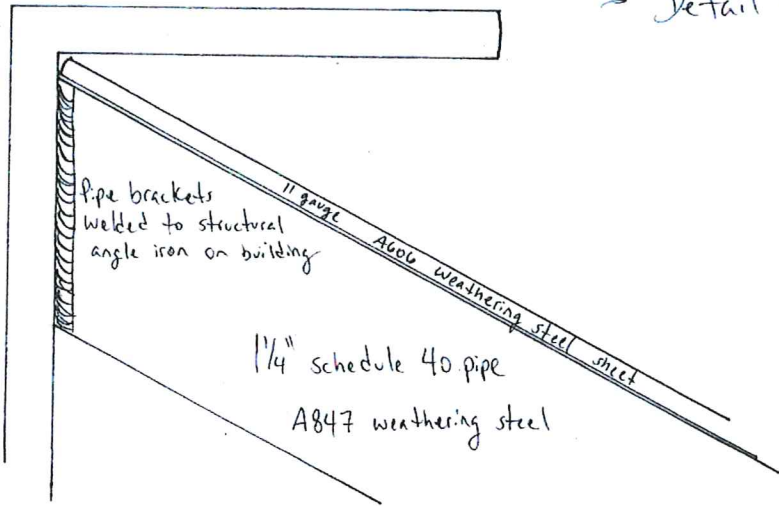 Detail
Pipe brackets
welded to structural
angle iron on building
11 gauge A606 weathering steel sheet
1 1/4" schedule 40 pipe
A847 weathering steel